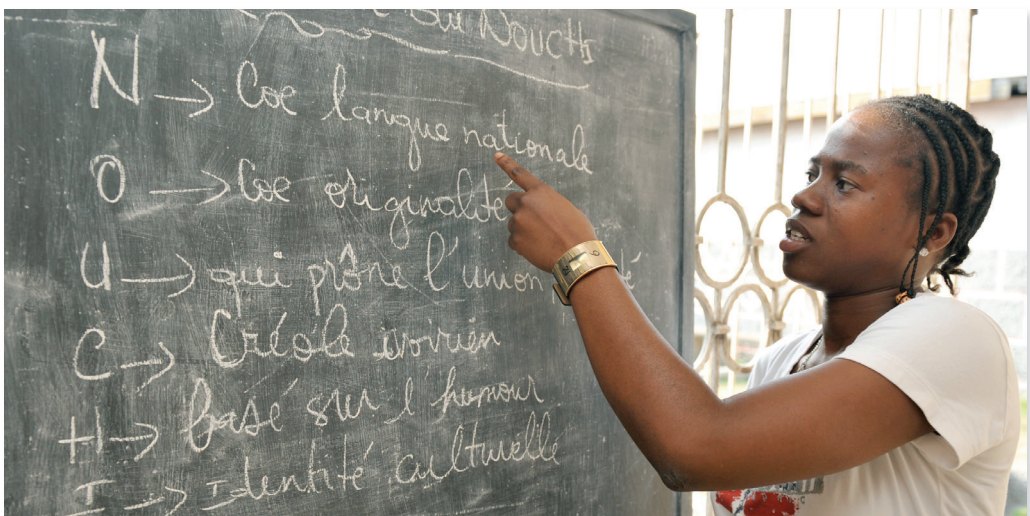 du Noucthi
N → Coe langue nationale
O → Coe originalité
U → qui prône l'union
C → Créole ivoirien
H → basé sur l'humour
I → Identité culturelle